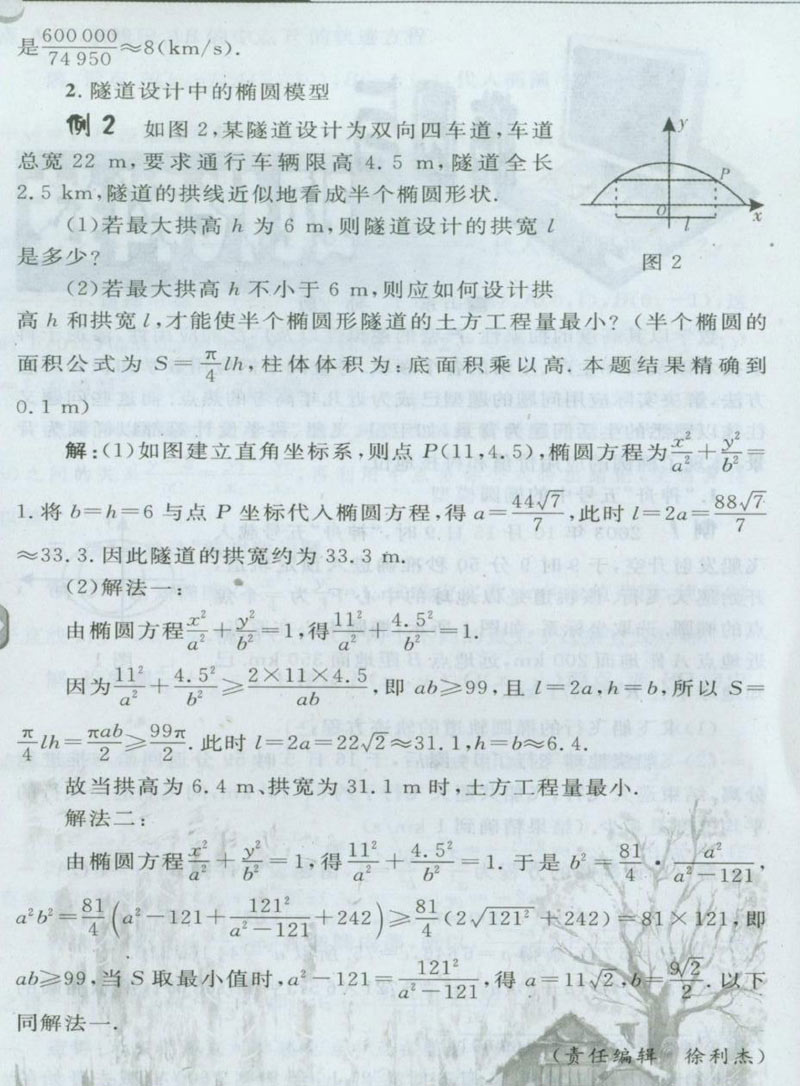 是600 000/74 950≈8(km/s).
2. 隧道设计中的椭圆模型
例 2 如图 2,某隧道设计为双向四车道,车道
总宽 22 m,要求通行车辆限高 4.5 m,隧道全长
2.5 km,隧道的拱线近似地看成半个椭圆形状.
(1)若最大拱高 h 为 6 m,则隧道设计的拱宽 l
是多少?
y
P
O
x
l
图 2
(2)若最大拱高 h 不小于 6 m,则应如何设计拱
高 h 和拱宽 l,才能使半个椭圆形隧道的土方工程量最小?(半个椭圆的
面积公式为 S=π/4 lh,柱体体积为:底面积乘以高.本题结果精确到
0.1 m)
解:(1)如图建立直角坐标系,则点 P(11,4.5),椭圆方程为x²/a²+y²/b²=
1.将 b=h=6 与点 P 坐标代入椭圆方程,得 a=44√7/7,此时 l=2a=88√7/7
≈33.3.因此隧道的拱宽约为 33.3 m.
(2)解法一:
由椭圆方程x²/a²+y²/b²=1,得11²/a²+4.5²/b²=1.
因为11²/a²+4.5²/b²≥2×11×4.5/ab,即 ab≥99,且 l=2a,h=b,所以 S=
π/4 lh=πab/2≥99π/2.此时 l=2a=22√2≈31.1,h=b≈6.4.
故当拱高为 6.4 m、拱宽为 31.1 m 时,土方工程量最小.
解法二:
由椭圆方程x²/a²+y²/b²=1,得11²/a²+4.5²/b²=1.于是 b²=81/4·a²/(a²-121),
a²b²=81/4(a²-121+121²/(a²-121)+242)≥81/4(2√121²+242)=81×121,即
ab≥99,当 S 取最小值时,a²-121=121²/(a²-121),得 a=11√2,b=9√2/2.以下
同解法一.
(责任编辑 徐利杰)